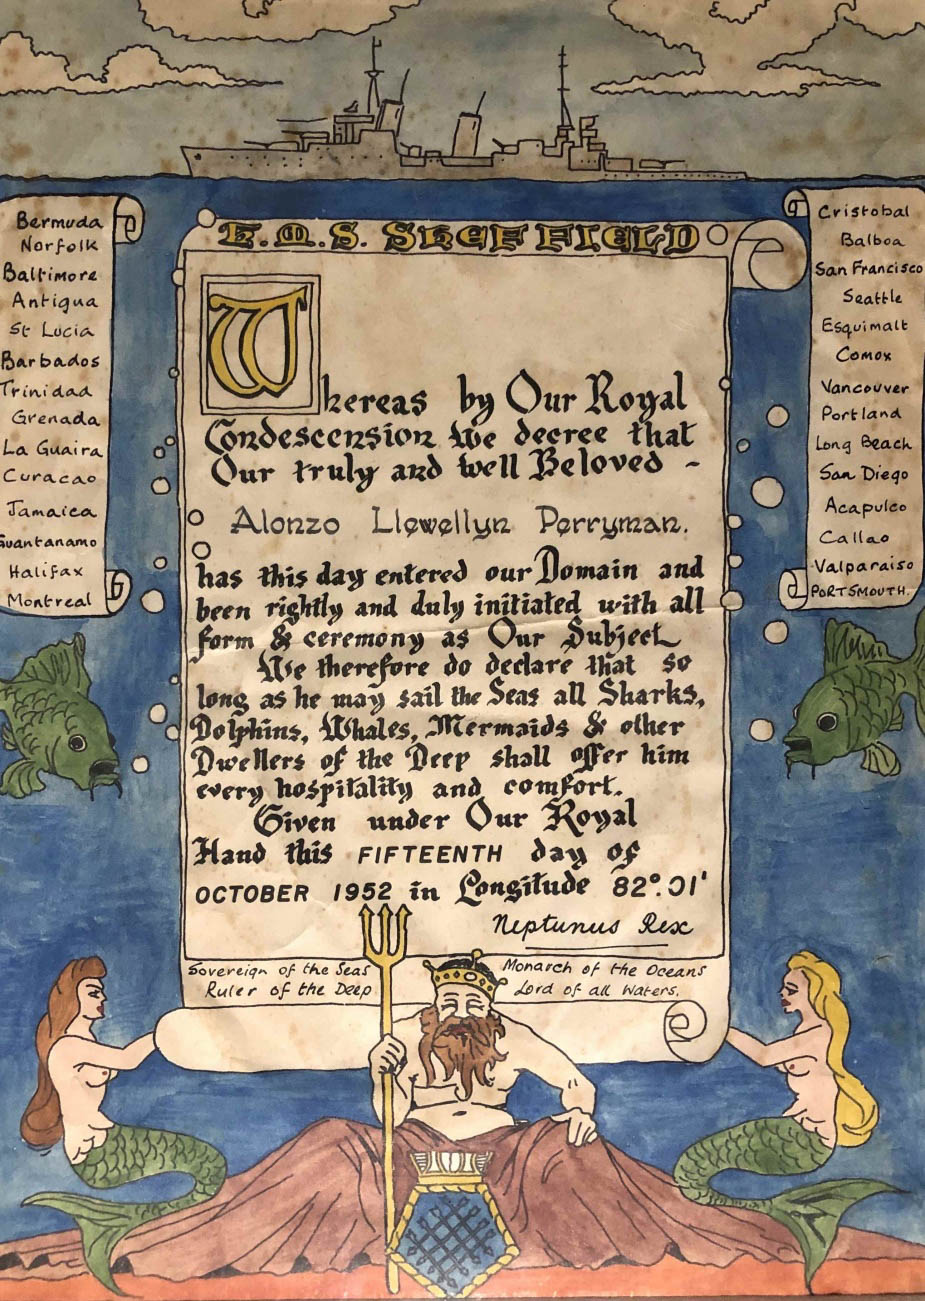 H.M.S. SHEFFIELD
Bermuda
Norfolk
Baltimore
Antigua
St Lucia
Barbados
Trinidad
Grenada
La Guaira
Curacao
Jamaica
Guantanamo
Halifax
Montreal
Whereas by Our Royal
Condescension We decree that
Our truly and well Beloved -
Alonzo Llewellyn Perryman.
has this day entered our Domain and
been rightly and duly initiated with all
form & ceremony as Our Subject
We therefore do declare that so
long as he may sail the Seas all Sharks,
Dolphins, Whales, Mermaids & other
Dwellers of the Deep shall offer him
every hospitality and comfort.
Given under Our Royal
Hand this FIFTEENTH day of
OCTOBER 1952 in Longitude 82°.01'
Neptunus Rex
Sovereign of the Seas
Ruler of the Deep
Monarch of the Oceans
Lord of all Waters.
Cristobal
Balboa
San Francisco
Seattle
Esquimalt
Comox
Vancouver
Portland
Long Beach
San Diego
Acapulco
Callao
Valparaiso
PORTSMOUTH.